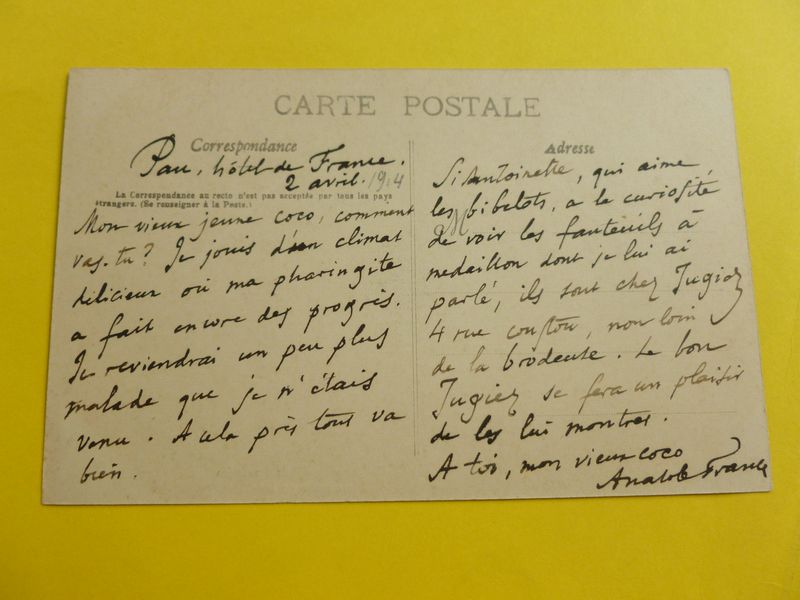 CARTE POSTALE
Correspondance
Pau, hôtel de France.
2 avril. 1914
La Correspondance au recto n'est pas acceptée par tous les pays
étrangers. (Se renseigner à la Poste.)
Mon vieux jeune coco, comment
vas-tu? Je jouis d'un climat
délicieux où ma pharingite
a fait encore des progrès.
Je reviendrai un peu plus
malade que je n'étais
venu. A cela près tout va
bien.
Adresse
Si Antoinette, qui aime
les bibelots, a la curiosité
de voir les fauteuils à
medaillon dont je lui ai
parlé, ils sont chez Jugiez
4 rue coustou, non loin
de la brodeuse. Le bon
Jugiez se fera un plaisir
de les lui montrer.
A toi, mon vieux coco
Anatole France